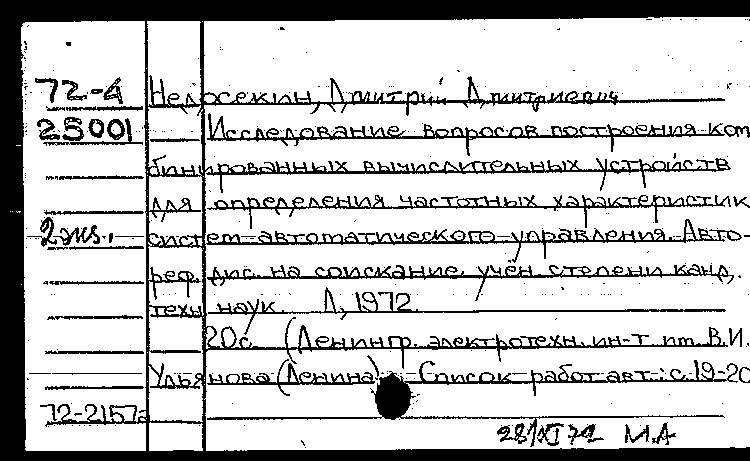 72-4 Недосекин, Дмитрий Дмитриевич
25001 Исследование вопросов построения ком
бинированных вычислительных устройств
для определения частотных характеристик
2экз., систем автоматического управления. Авто-
реф. дис. на соискание учён. степени канд.
техн. наук. Л., 1972.
20с. (Ленингр. электротехн. ин-т им. В.И.
Ульянова (Ленина). Список работ авт.: с. 19-20
72-2157а
28/XI 72 М.А